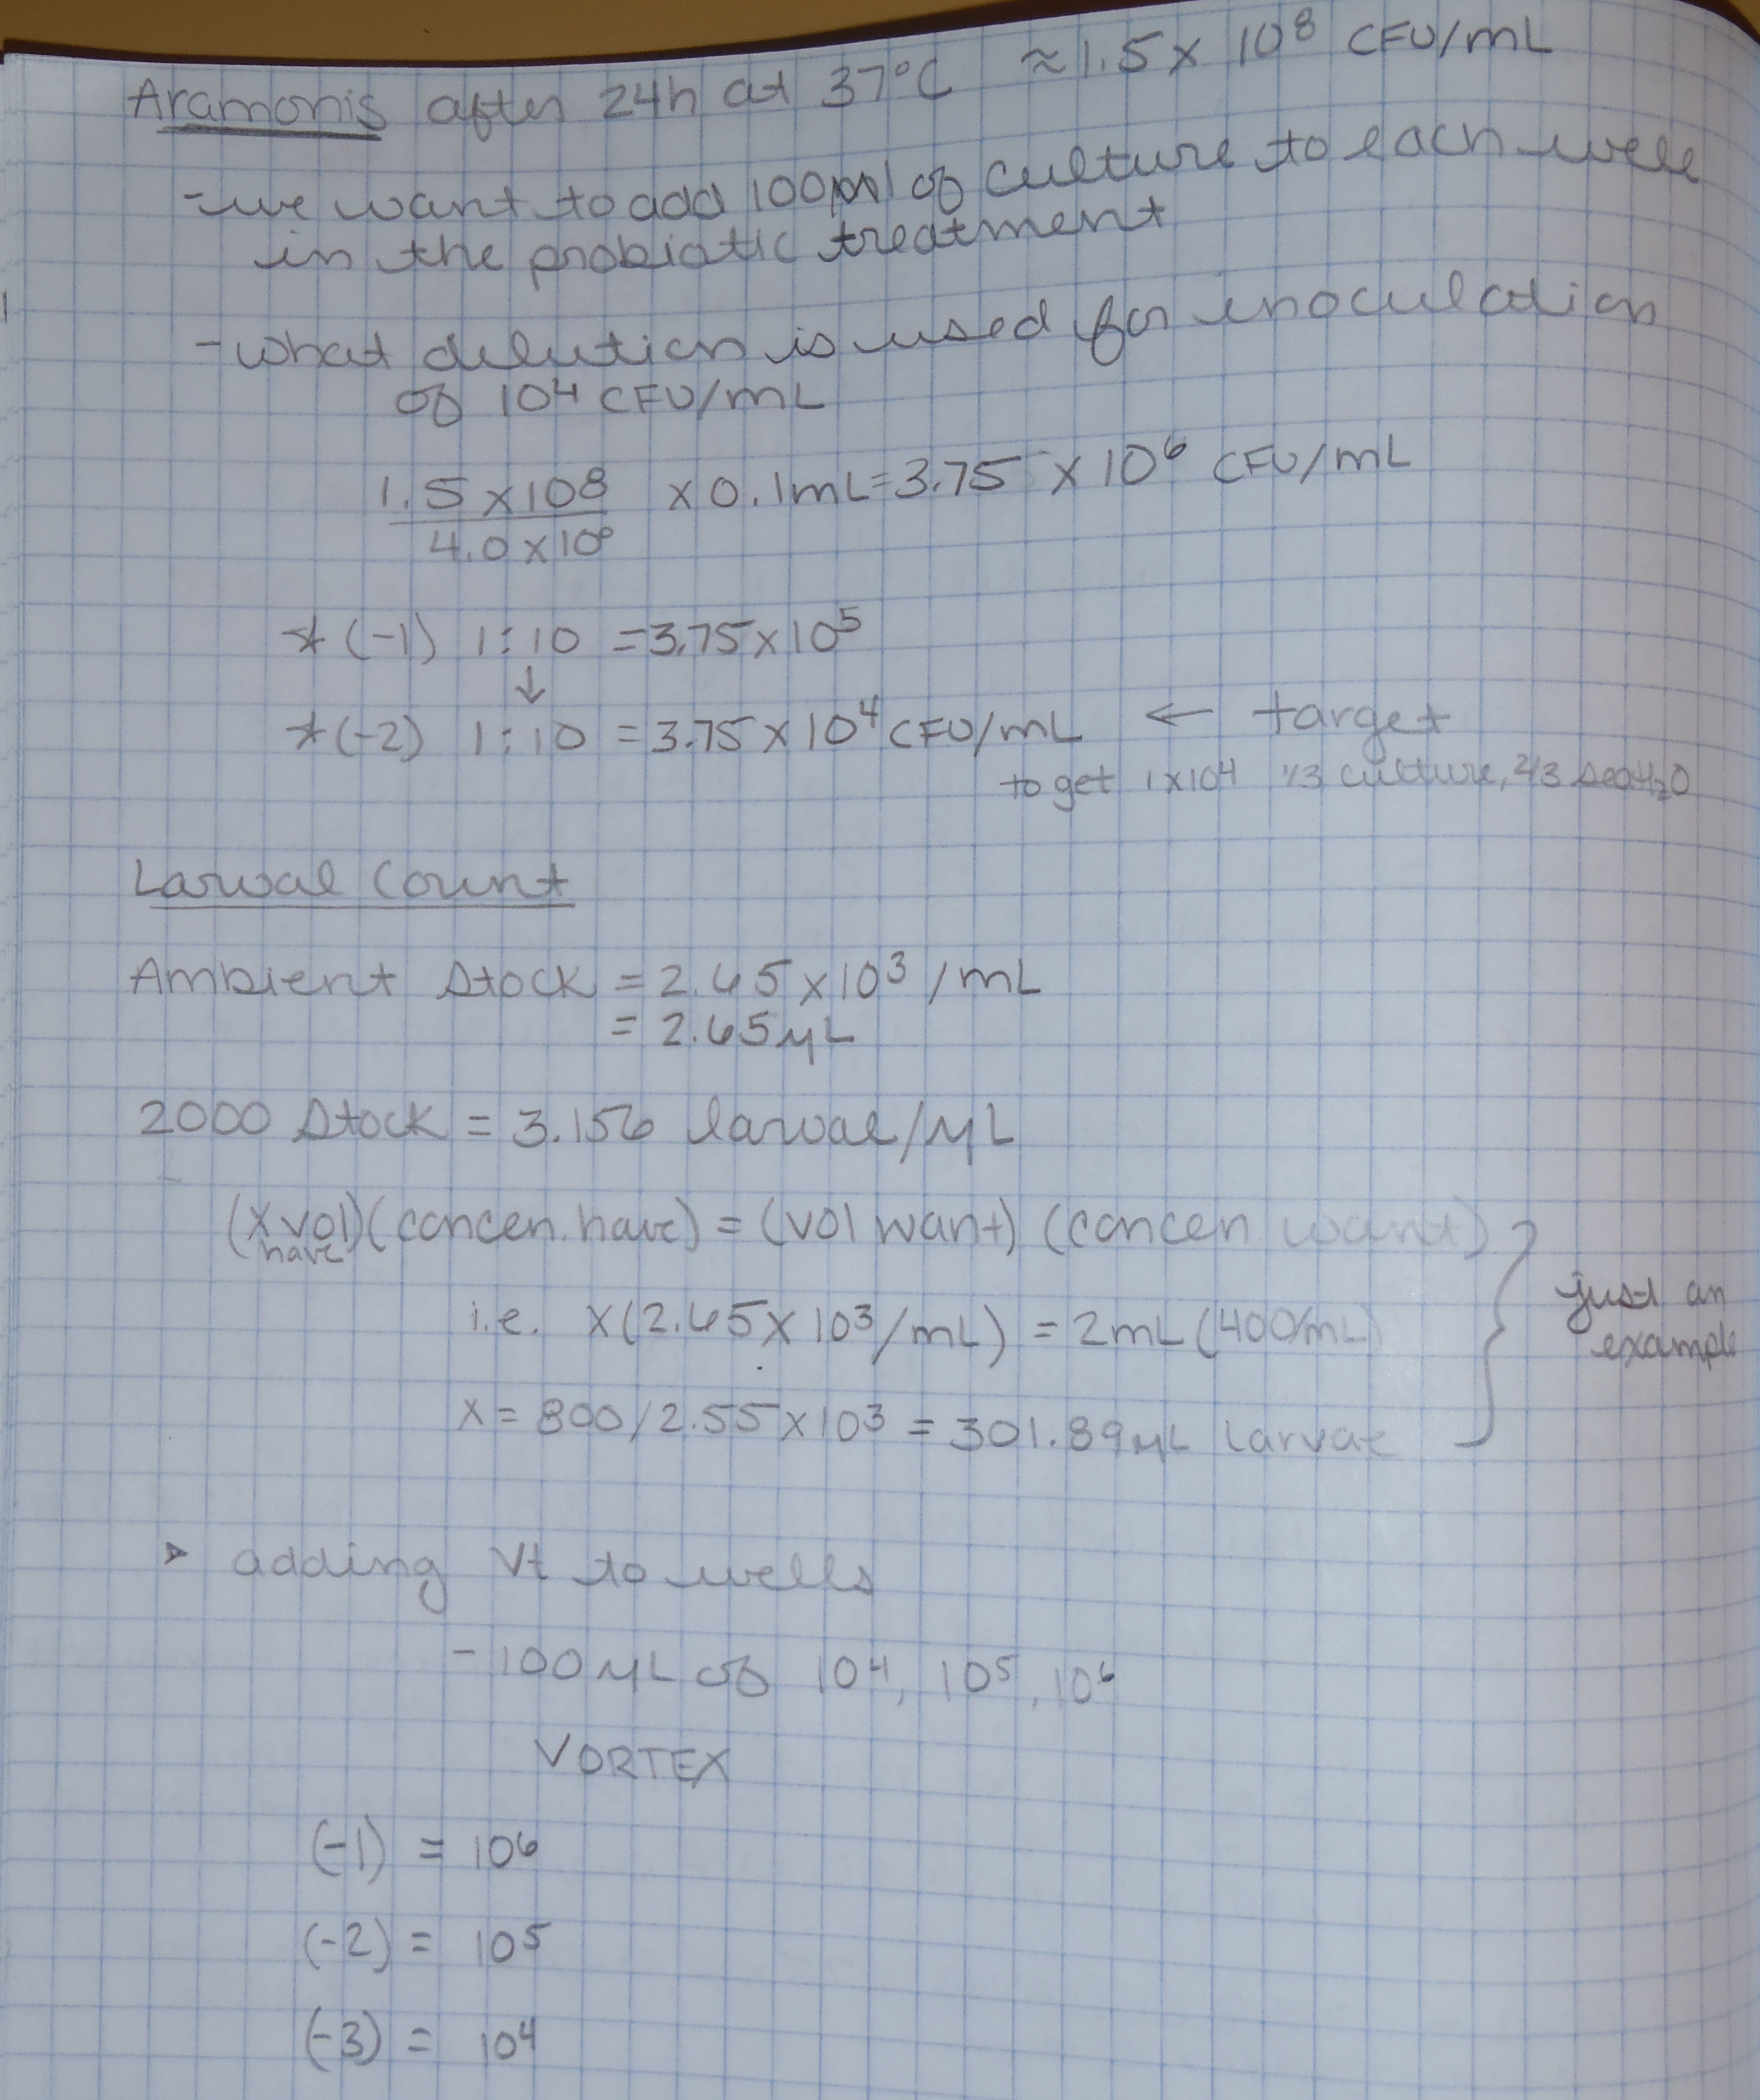 Aramonis after 24h at 37°C ≈1.5 x 10⁸ CFU/mL
- we want to add 100μl of culture to each well
in the probiotic treatment
- what dilution is used for inoculation
of 10⁴ CFU/mL
1.5 x 10⁸ x 0.1mL = 3.75 x 10⁶ CFU/mL
4.0 x 10⁰
* (-1) 1:10 = 3.75 x 10⁵
↓
* (-2) 1:10 = 3.75 x 10⁴ CFU/mL ← target
to get 1x10⁴ 1/3 culture, 2/3 seaH₂O
Larval Count
Ambient Stock = 2.65 x 10³ /mL
= 2.65 μL
2000 Stock = 3.156 larvae/μL
(X vol) (concen. have) = (vol want) (concen want)
have
i.e. X (2.65 x 10³/mL) = 2mL (400/mL)
just an
example
X = 800/2.55 x 10³ = 301.89 μL Larvae
➤ adding Vt to wells
- 100 μL of 10⁴, 10⁵, 10⁶
VORTEX
(-1) = 10⁶
(-2) = 10⁵
(-3) = 10⁴